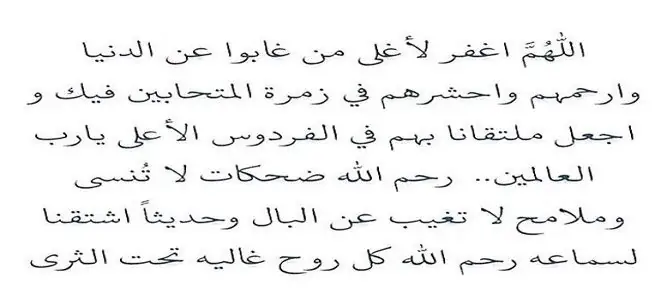 اللَّهُمَّ اغفر لأغلى من غابوا عن الدنيا
وارحمهم واحشرهم في زمرة المتحابين فيك و
اجعل ملتقانا بهم في الفردوس الأعلى يارب
العالمين.. رحم الله ضحكات لا تُنسى
وملامح لا تغيب عن البال وحديثاً اشتقنا
لسماعه رحم الله كل روح غاليه تحت الثرى